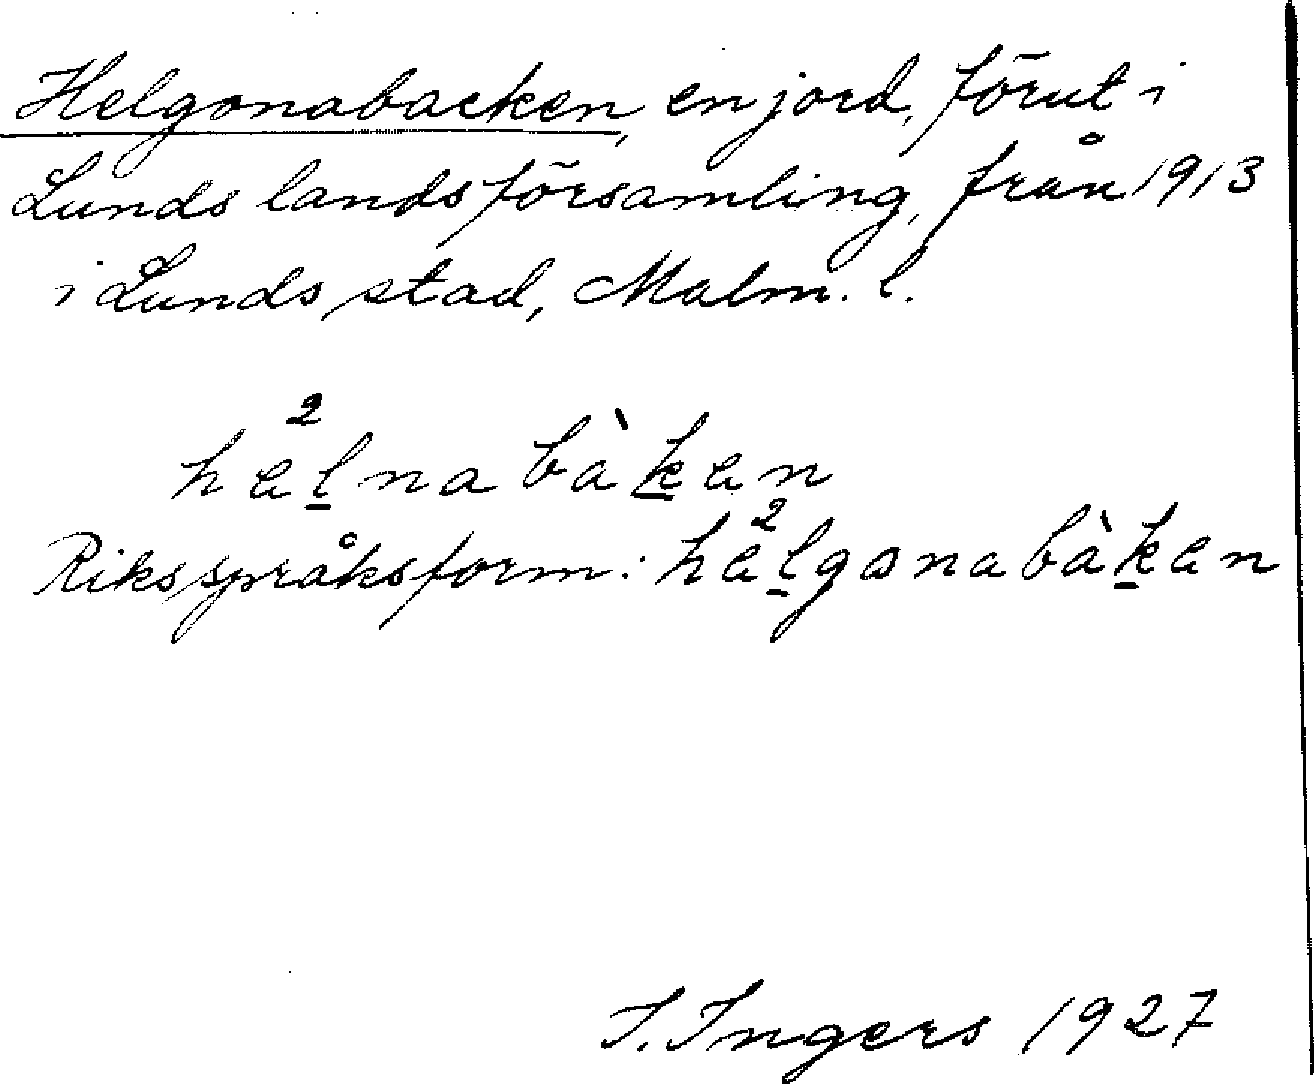 Helgonabacken, en jord, förut i
Lunds landsförsamling, från 1913
i Lunds stad, Malm. l.
hal²nabàkan
Riksspråksform: hal²gonabàkan
I. Ingers 1927